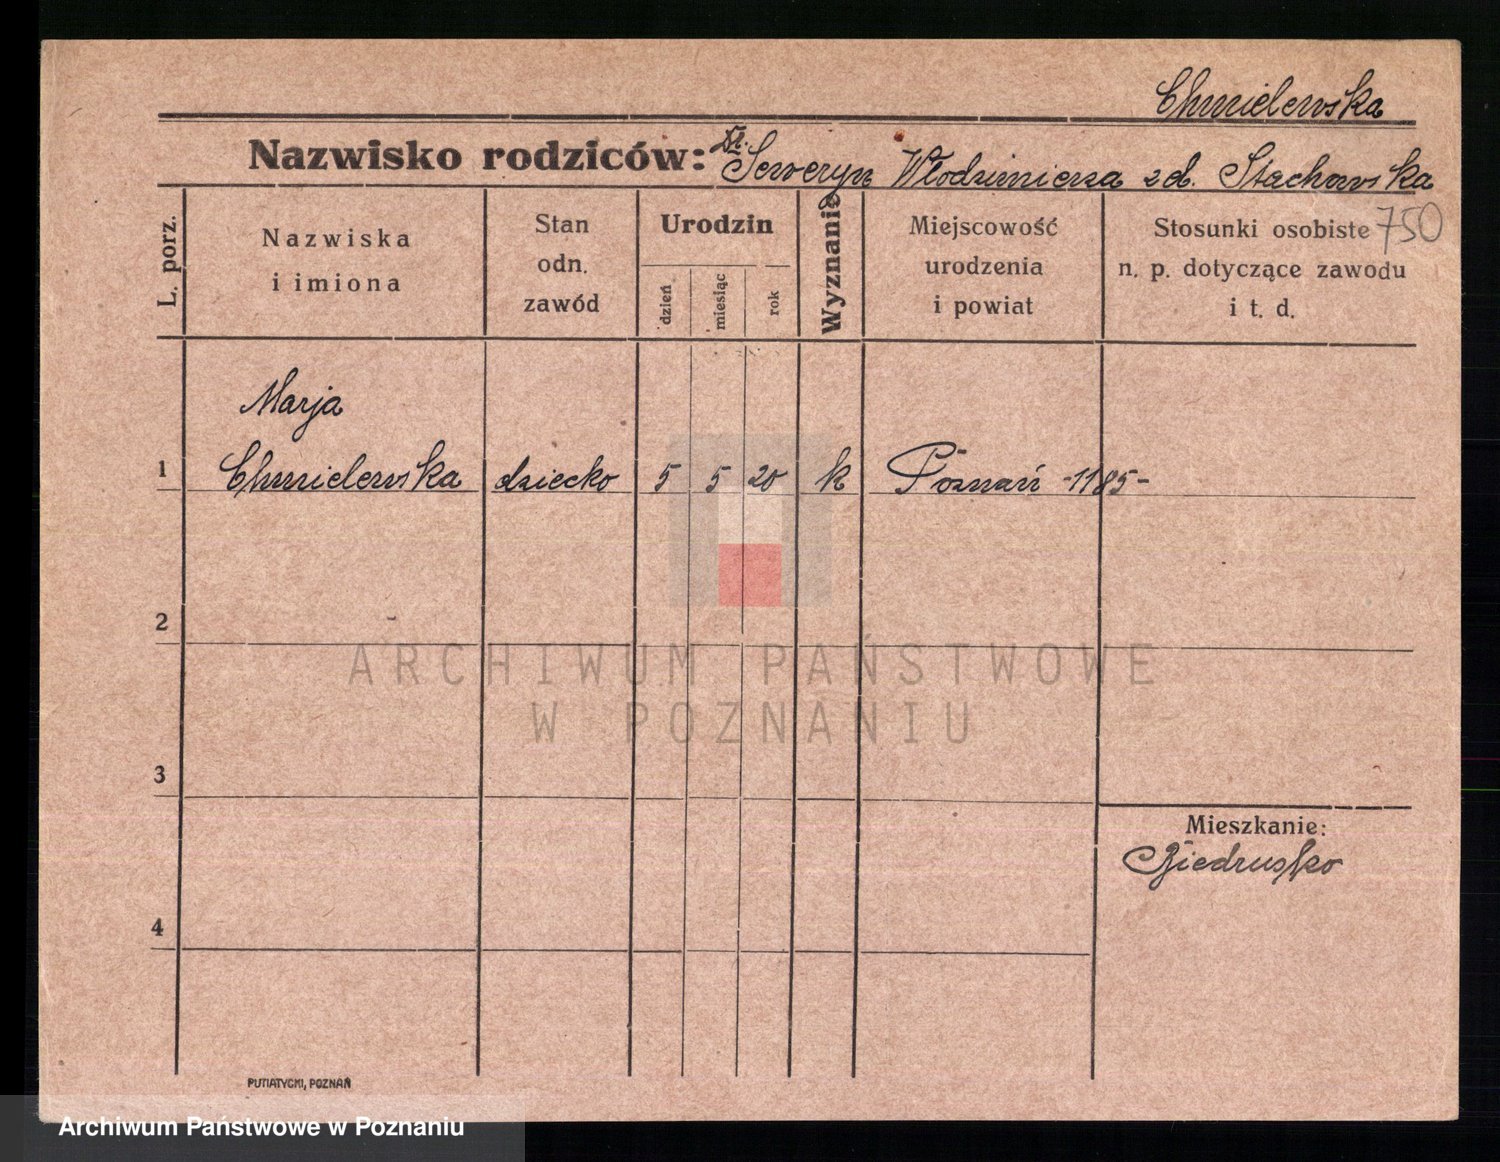 Chmielewska
Nazwisko rodziców: Dr. Seweryn Włodzimierza z d. Stachowska
750
L. porz.
Nazwiska
i imiona
Stan
odn.
zawód
Urodzin
dzień
miesiąc
rok
Wyznanie
Miejscowość
urodzenia
i powiat
Stosunki osobiste
n. p. dotyczące zawodu
i t. d.
Marja
1 Chmielewska dziecko 5 5 20 k Poznań -1185-
2
ARCHIWUM PAŃSTWOWE
W POZNANIU
3
Mieszkanie:
Biedrusko
4
PUTIATYCKI, POZNAŃ
Archiwum Państwowe w Poznaniu